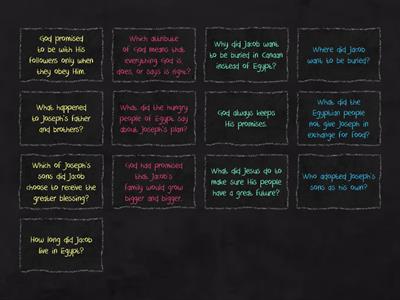 God promised
to be with His
followers only when
they obey Him.
Which attribute
of God means that
everything God is,
does, or says is right?
Why did Jacob want
to be buried in Canaan
instead of Egypt?
Where did Jacob
want to be buried?
What happened
to Joseph's father
and brothers?
What did the hungry
people of Egypt say
about Joseph's plan?
God always keeps
His promises.
What did the
Egyptian people
not give Joseph in
exchange for food?
Which of Joseph's
sons did Jacob
choose to receive the
greater blessing?
God had promised
that Jacob's
family would grow
bigger and bigger.
What did Jesus do to
make sure His people
have a great future?
Who adopted Joseph's
sons as his own?
How long did Jacob
live in Egypt?